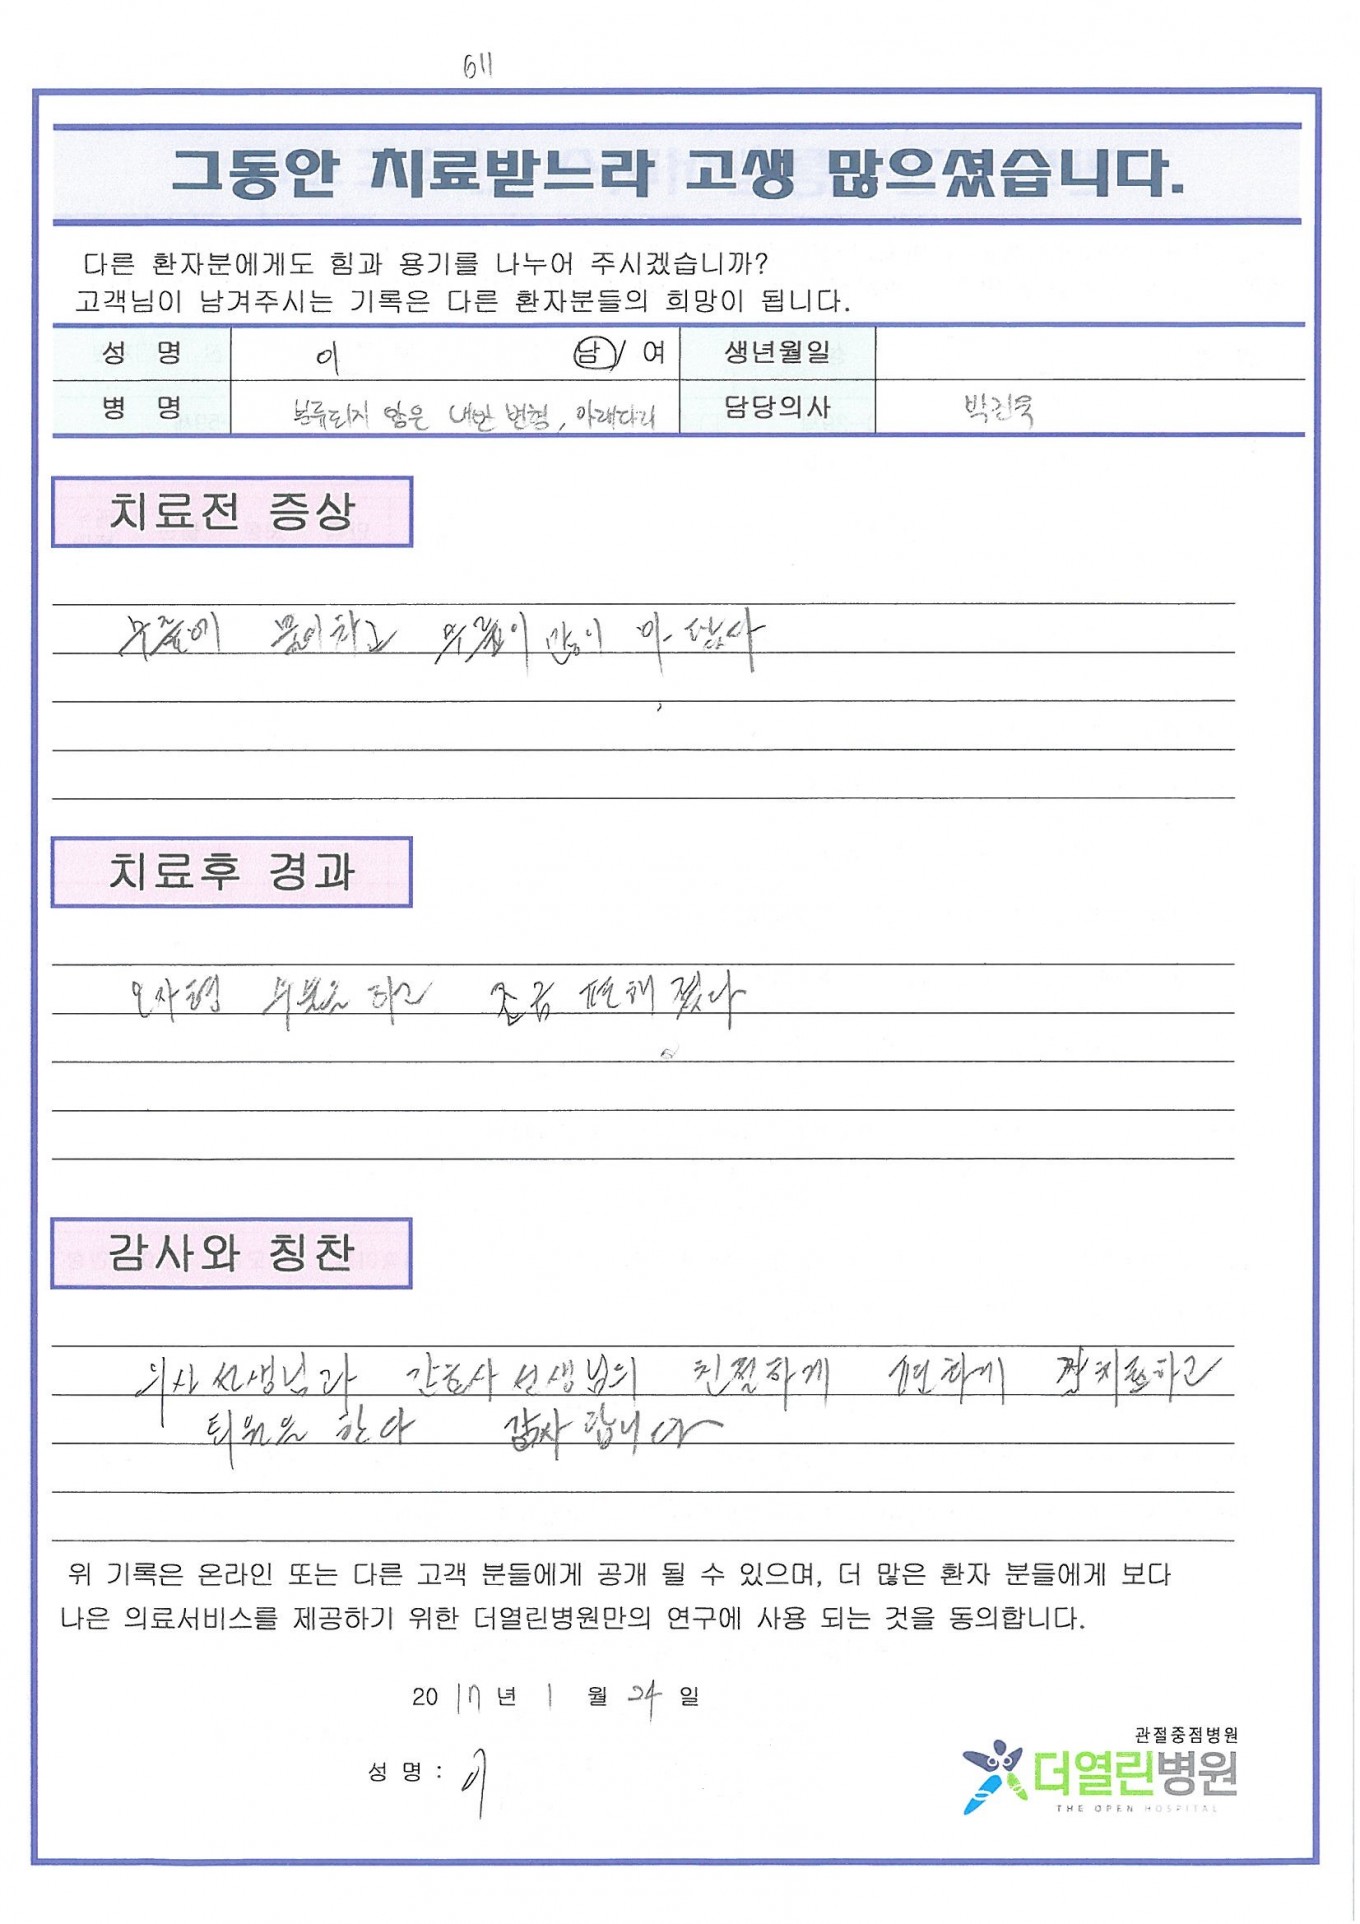 611
그동안 치료받느라 고생 많으셨습니다.
다른 환자분에게도 힘과 용기를 나누어 주시겠습니까?
고객님이 남겨주시는 기록은 다른 환자분들의 희망이 됩니다.
성 명 이 남 / 여 생년월일
병 명 분류되지 않은 내반 변형, 아래다리 담당의사 박진욱
치료전 증상
무릎에 물이차고 무릎이 많이 아팠다
치료후 경과
오자형 수술을 하고 조금 편해졌다
감사와 칭찬
의사선생님과 간호사선생님의 친절하게 편하게 잘치료하고
퇴원을 한다 감사합니다
위 기록은 온라인 또는 다른 고객 분들에게 공개 될 수 있으며, 더 많은 환자 분들에게 보다
나은 의료서비스를 제공하기 위한 더열린병원만의 연구에 사용 되는 것을 동의합니다.
2017년 1 월 24 일
관절중점병원
성 명 : 이
더열린병원
THE OPEN HOSPITAL